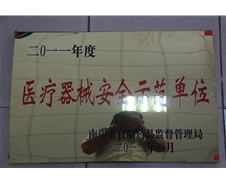 二〇一一年度
医疗器械安全示范单位
市食品药品监督管理局
二〇一二年 月